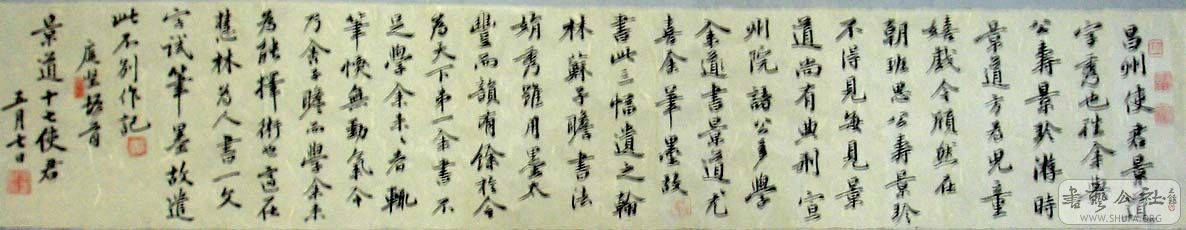 昌州使君景道
宗秀也往余與
公壽景珍游時
景道方為兒童
嬉戲今頎然在
朝班思公壽景珍
不得見每見景
道尚有典刑宣
州院諸公多學
余道書景道尤
喜余筆墨故
書此三幅遺之翰
林蘇子瞻書法
娟秀雖用墨太
豐而韻有餘於今
為天下第一余書不
足學余未〻者輒
筆愞無勁氣今
乃舍子瞻而學余未
為能擇術也適在
慧林為人書一文
字試筆墨故遣
此不別作記
庭堅頓首
景道十七使君
五月七日
書藝公社
WWW.SHUFA.ORG